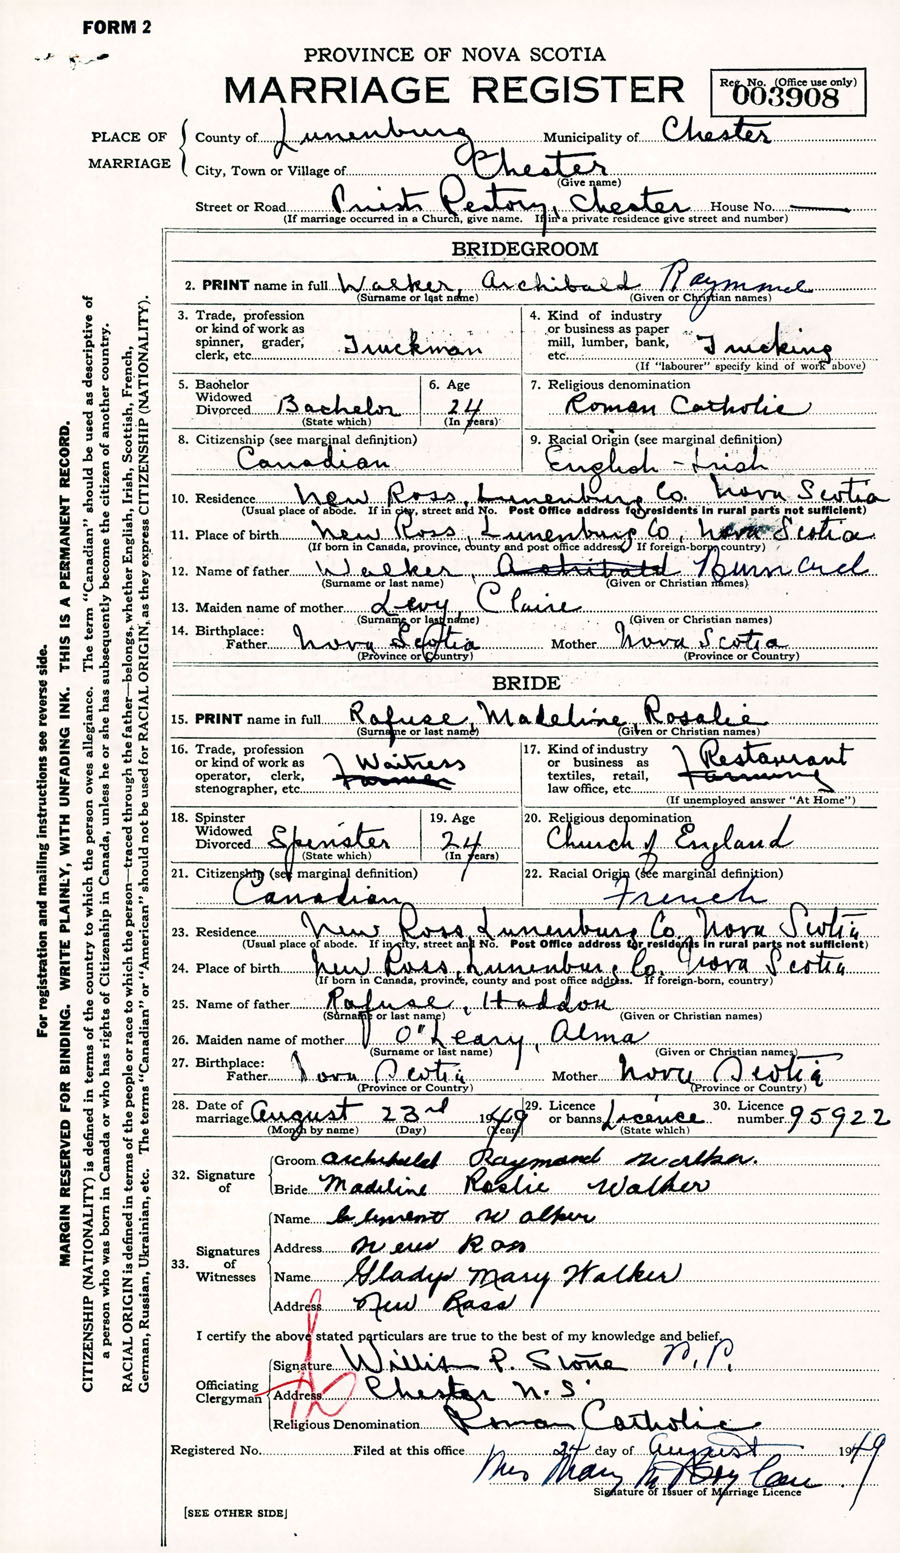 FORM 2
PROVINCE OF NOVA SCOTIA
MARRIAGE REGISTER
Reg. No. (Office use only)
003908
PLACE OF MARRIAGE
County of Lunenburg Municipality of Chester
City, Town or Village of Chester
(Give name)
Street or Road Chester House No. —
(If marriage occurred in a Church, give name. If in a private residence give street and number)
BRIDEGROOM
2. PRINT name in full Walker, Archibald
(Surname or last name) (Given or Christian names)
3. Trade, profession or kind of work as spinner, grader, clerk, etc. Truckman
4. Kind of industry or business as paper mill, lumber, bank, etc. Trucking
(If "labourer" specify kind of work above)
5. Bachelor Widowed Divorced Bachelor
(State which)
6. Age 24
(In years)
7. Religious denomination
Roman Catholic
8. Citizenship (see marginal definition)
Canadian
9. Racial Origin (see marginal definition)
English - Irish
10. Residence New Ross, Lunenburg Co. Nova Scotia
(Usual place of abode. If in city, street and No. Post Office address for residents in rural parts not sufficient)
11. Place of birth New Ross, Lunenburg Co, Nova Scotia
(If born in Canada, province, county and post office address. If foreign-born, country)
12. Name of father Walker, Archibald
(Surname or last name) (Given or Christian names)
13. Maiden name of mother Levy, Claire
(Surname or last name) (Given or Christian names)
14. Birthplace:
Father Nova Scotia Mother Nova Scotia
(Province or Country) (Province or Country)
BRIDE
15. PRINT name in full Rafuse, Madeline, Rosalie
(Surname or last name) (Given or Christian names)
16. Trade, profession or kind of work as operator, clerk, stenographer, etc. Waitress
Farmer
17. Kind of industry or business as textiles, retail, law office, etc. Restaurant
Farming
(If unemployed answer "At Home")
18. Spinster Widowed Divorced Spinster
(State which)
19. Age 24
(In years)
20. Religious denomination
Church of England
21. Citizenship (see marginal definition)
Canadian
22. Racial Origin (see marginal definition)
French
23. Residence New Ross Lunenburg Co. Nova Scotia
(Usual place of abode. If in city, street and No. Post Office address for residents in rural parts not sufficient)
24. Place of birth New Ross, Lunenburg Co. Nova Scotia
(If born in Canada, province, county and post office address. If foreign-born, country)
25. Name of father Rafuse, Haddon
(Surname or last name) (Given or Christian names)
26. Maiden name of mother O'Leary, Alma
(Surname or last name) (Given or Christian names)
27. Birthplace:
Father Nova Scotia Mother Nova Scotia
(Province or Country) (Province or Country)
28. Date of marriage August 23rd 1949
(Month by name) (Day) (Year)
29. Licence or banns Licence
(State which)
30. Licence number 95922
32. Signature of
Groom Archibald Raymond Walker.
Bride Madeline Roslie Walker
33. Signatures of Witnesses
Name Clement Walker
Address New Ross
Name Gladys Mary Walker
Address New Ross
I certify the above stated particulars are true to the best of my knowledge and belief.
Officiating Clergyman
Signature P. P.P.
Address Chester N.S.
Religious Denomination Roman Catholic
Registered No. Filed at this office 24 day of August 1949
Mrs Mary
Signature of Issuer of Marriage Licence
[SEE OTHER SIDE]
For registration and mailing instructions see reverse side.
MARGIN RESERVED FOR BINDING. WRITE PLAINLY, WITH UNFADING INK. THIS IS A PERMANENT RECORD.
CITIZENSHIP (NATIONALITY) is defined in terms of the country to which the person owes allegiance. The term "Canadian" should be used as descriptive of
a person who was born in Canada or who has rights of Citizenship in Canada, unless he or she has subsequently become the citizen of another country.
RACIAL ORIGIN is defined in terms of the people or race to which the person—traced through the father—belongs, whether English, Irish, Scottish, French,
German, Russian, Ukrainian, etc. The terms "Canadian" or "American" should not be used for RACIAL ORIGIN, as they express CITIZENSHIP (NATIONALITY).